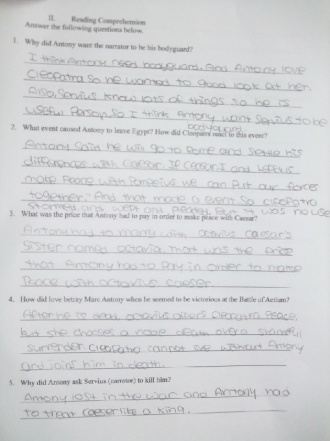 II. Reading Comprehension
Answer the following questions below.
1. Why did Antony want the narrator to be his bodyguard?
I think Antony need bodyguard. And Antony love
Cleopatra so he wanted to good look at her.
Also, Servius know lots of things so he is
useful person. So I think Antony want Servius to be
bodyguard.
2. What event caused Antony to leave Egypt? How did Cleopatra react to this event?
Antony said he will go to Rome and settle his
differences with Caesar. If Caesar and Lepidus
make peace with Pompeius we can put our forces
together. And that made a event so cleopatra
stormed and wept and pleaded. But it was no use
3. What was the price that Antony had to pay in order to make peace with Caesar?
Antony had to marry with octavius caesar's
sister named octavia. That was the price
that Antony had to pay in order to make
peace with octavius caeser.
4. How did love betray Marc Antony when he seemed to be victorious at the Battle of Actium?
After he is dead, octavius offers cleopatra peace,
but she choses a noble death over a shameful
surrender. Cleopatra cannot live without Antony
and joins him in death.
5. Why did Antony ask Servius (narrator) to kill him?
Antony lost in the war and Antony had
to treat caeser like a king.